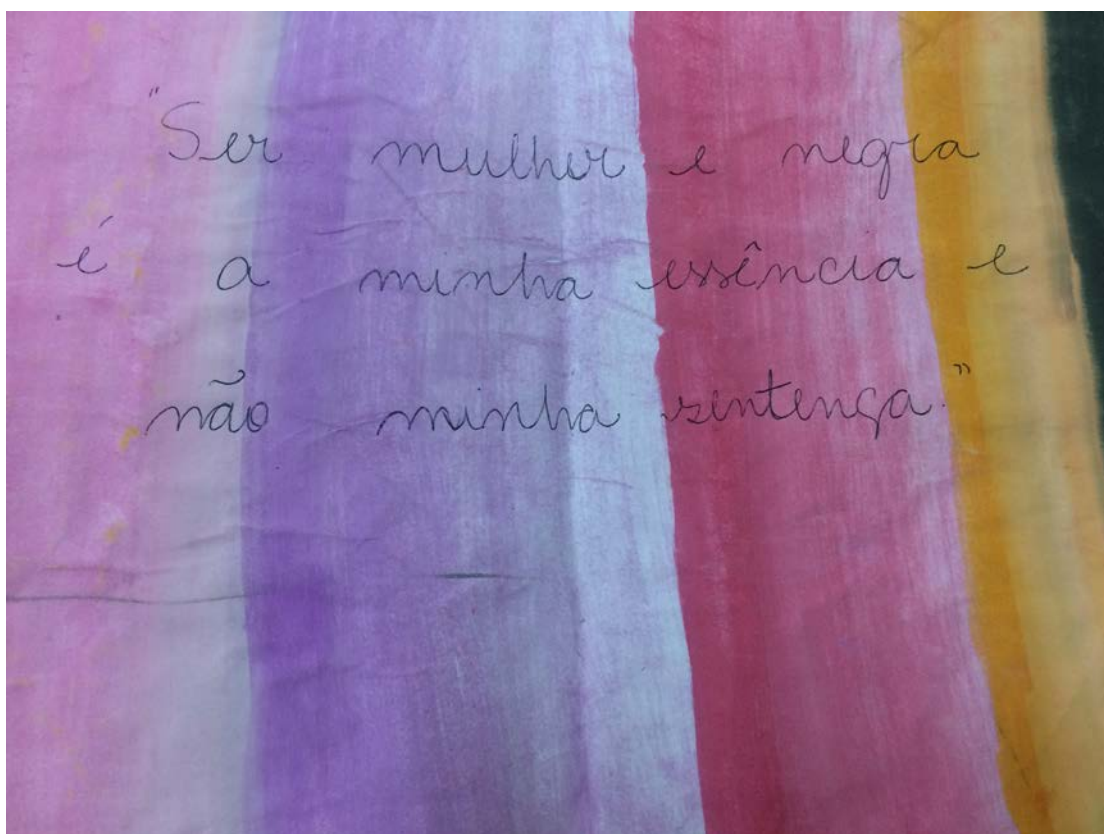 "Ser mulher e negra
é a minha essência e
não minha sentença."